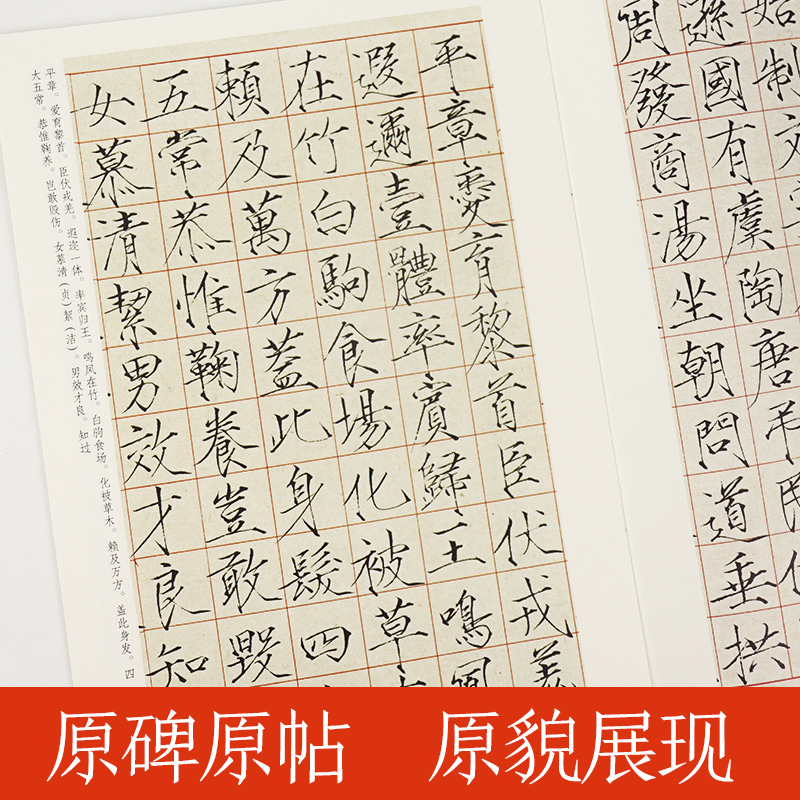 始制文
遜國有虞陶唐弔民
周發商湯坐朝問道垂拱
平章愛育黎首臣伏戎羌
遐邇壹體率賓歸王鳴鳳
在竹白駒食場化被草
賴及萬方蓋此身髮四
五常恭惟鞠養豈敢毀
女慕清絜男效才良知
平章。爱育黎首。臣伏戎羌。遐迩一体。率宾归王。鸣凤在竹。白驹食场。化被草木。赖及万方。盖此身发。四
大五常。恭惟鞠养。岂敢毁伤。女慕清（贞）絜（洁）。男效才良。知过
原碑原帖 原貌展现